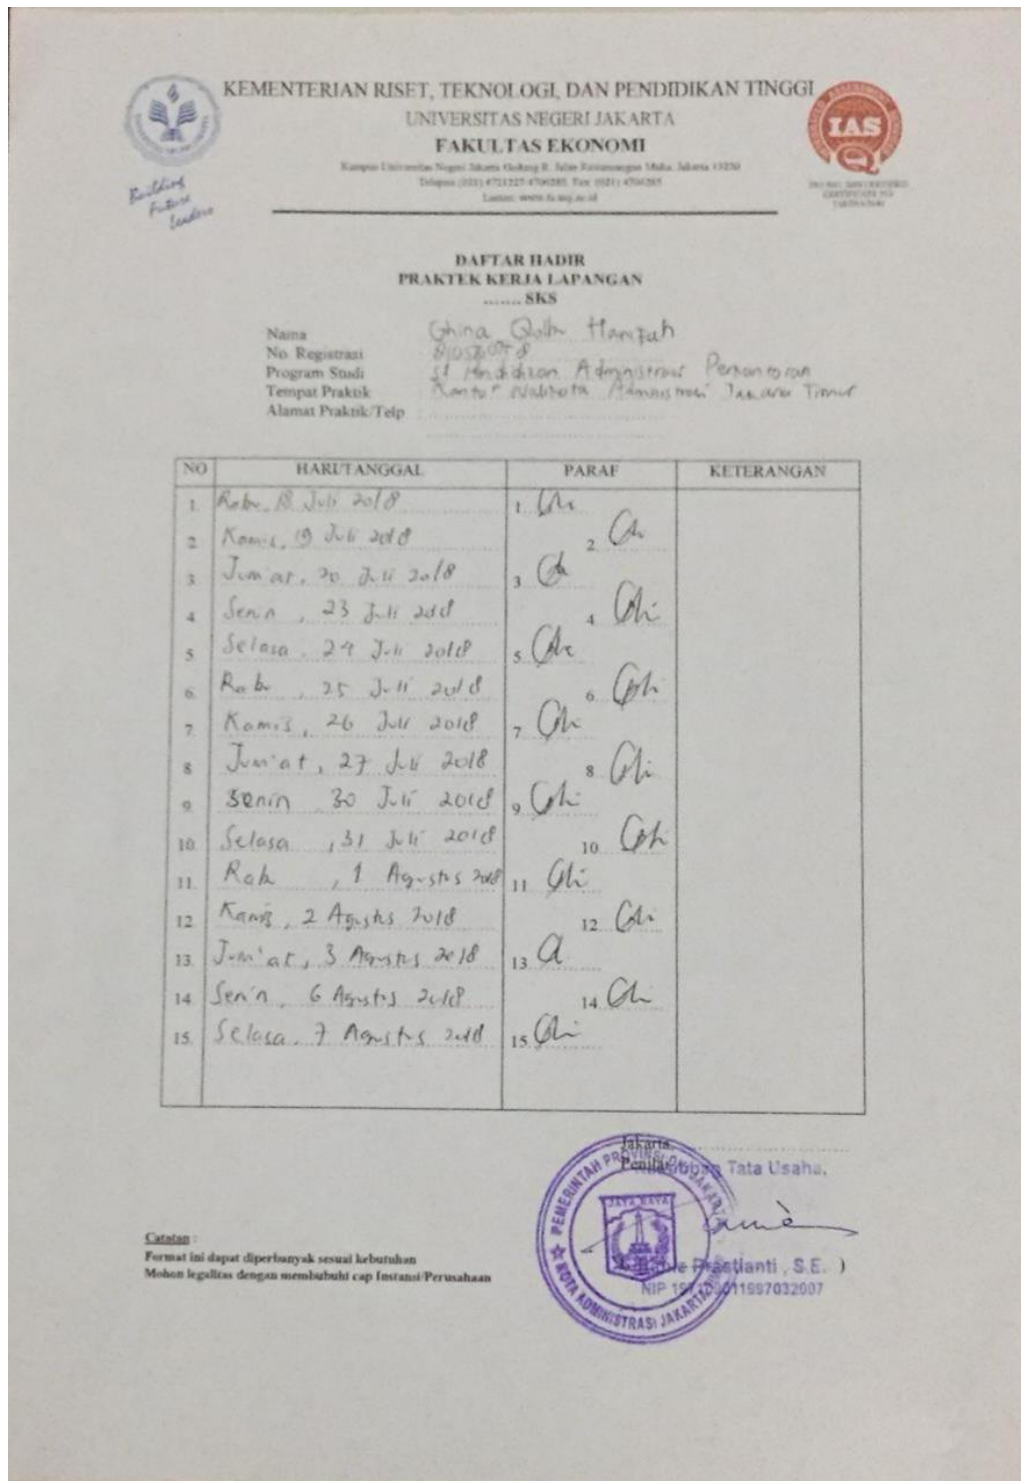 KEMENTERIAN RISET, TEKNOLOGI, DAN PENDIDIKAN TINGGI
UNIVERSITAS NEGERI JAKARTA
FAKULTAS EKONOMI
Kampus Universitas Negeri Jakarta Gedung R, Jalan Rawamangun Muka, Jakarta 13220
Telepon (021) 4721227/4706285, Fax: (021) 4706285
Laman: www.fe.unj.ac.id
Building
Future
Leaders
IAS
DAFTAR HADIR
PRAKTEK KERJA LAPANGAN
....... SKS
Nama Ghina Qolbi Hanifah
No. Registrasi
Program Studi S1 Pendidikan Administrasi Perkantoran
Tempat Praktik Kantor Walikota Administrasi Jakarta Timur
Alamat Praktik/Telp :
NO HARI/TANGGAL PARAF KETERANGAN
1. Rabu, 18 Juli 2018 1.
2. Kamis, 19 Juli 2018 2.
3. Jum'at, 20 Juli 2018 3.
4. Senin, 23 Juli 2018 4.
5. Selasa, 24 Juli 2018 5.
6. Rabu, 25 Juli 2018 6.
7. Kamis, 26 Juli 2018 7.
8. Jum'at, 27 Juli 2018 8.
9. Senin, 30 Juli 2018 9.
10. Selasa, 31 Juli 2018 10.
11. Rabu, 1 Agustus 2018 11.
12. Kamis, 2 Agustus 2018 12.
13. Jum'at, 3 Agustus 2018 13.
14. Senin, 6 Agustus 2018 14.
15. Selasa, 7 Agustus 2018 15.
Jakarta,
Penilai,
Tata Usaha,
PEMERINTAH PROVINSI DKI JAKARTA
JAYA RAYA
KOTA ADMINISTRASI JAKARTA
Prastianti, S.E. )
NIP
Catatan :
Format ini dapat diperbanyak sesuai kebutuhan
Mohon legalitas dengan membubuhi cap Instansi/Perusahaan